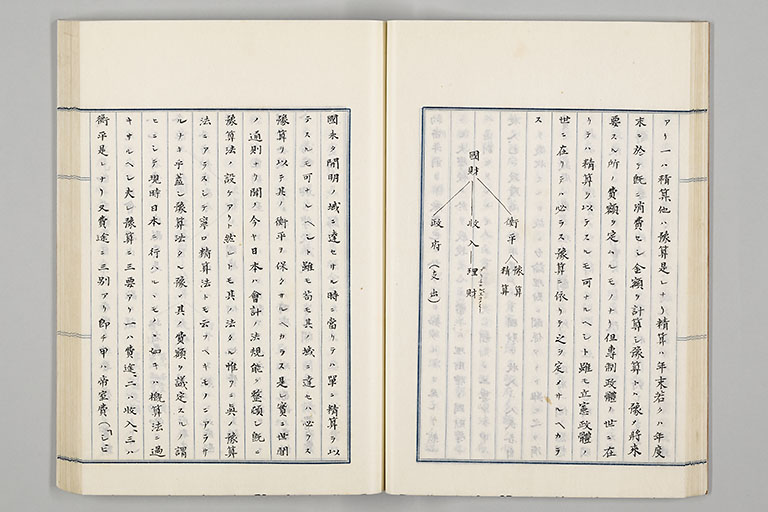 アリ一ハ精算他ハ豫算是レナリ精算ハ年末若クハ年度
末ニ於テ既ニ消費セシ金額ヲ計算シ豫算トハ豫ノ將來
要スル所ノ費額ヲ定ハルモノナリ但專制政體ノ世ニ在
リテハ精算ヲ以テスルモ可ナルヘシト雖モ立憲政體ノ
世ニ在リテハ必ラス豫算ニ依リテ之ヲ定メサルヘカラ
ス
衡平 豫算 精算
國財 收入 理財
政府(支出)
國未タ開明ノ域ニ達セサル時ニ當リテハ單ニ精算ヲ以
テスルモ可ナルヘシト雖モ苟モ其ノ域ニ達セハ必ラス
豫算ヲ以テ其ノ衡平ヲ保タサルヘカラス是レ實ニ世間
ノ通則ナリ聞ク今ヤ日本ハ會計ノ法規能ク整頓シ既ニ
豫算法ノ設ケアリト然レトモ其ノ法タル惟フニ眞ノ豫算
法ニアラスシテ寧ロ精算法トモ云フヘキモノニアラサ
ルナキ乎蓋シ豫算法タル豫メ其ノ費額ヲ議定スルノ謂
ヒニシテ現時日本ニ行ハルヽモノヽ如キハ概算法ニ過
キサルヘシ夫レ豫算ニ三要アリ一ハ費途、二ハ收入、三ハ
衡平是レナリ又費途ニ三別アリ即チ甲ハ帝室費(「シビ